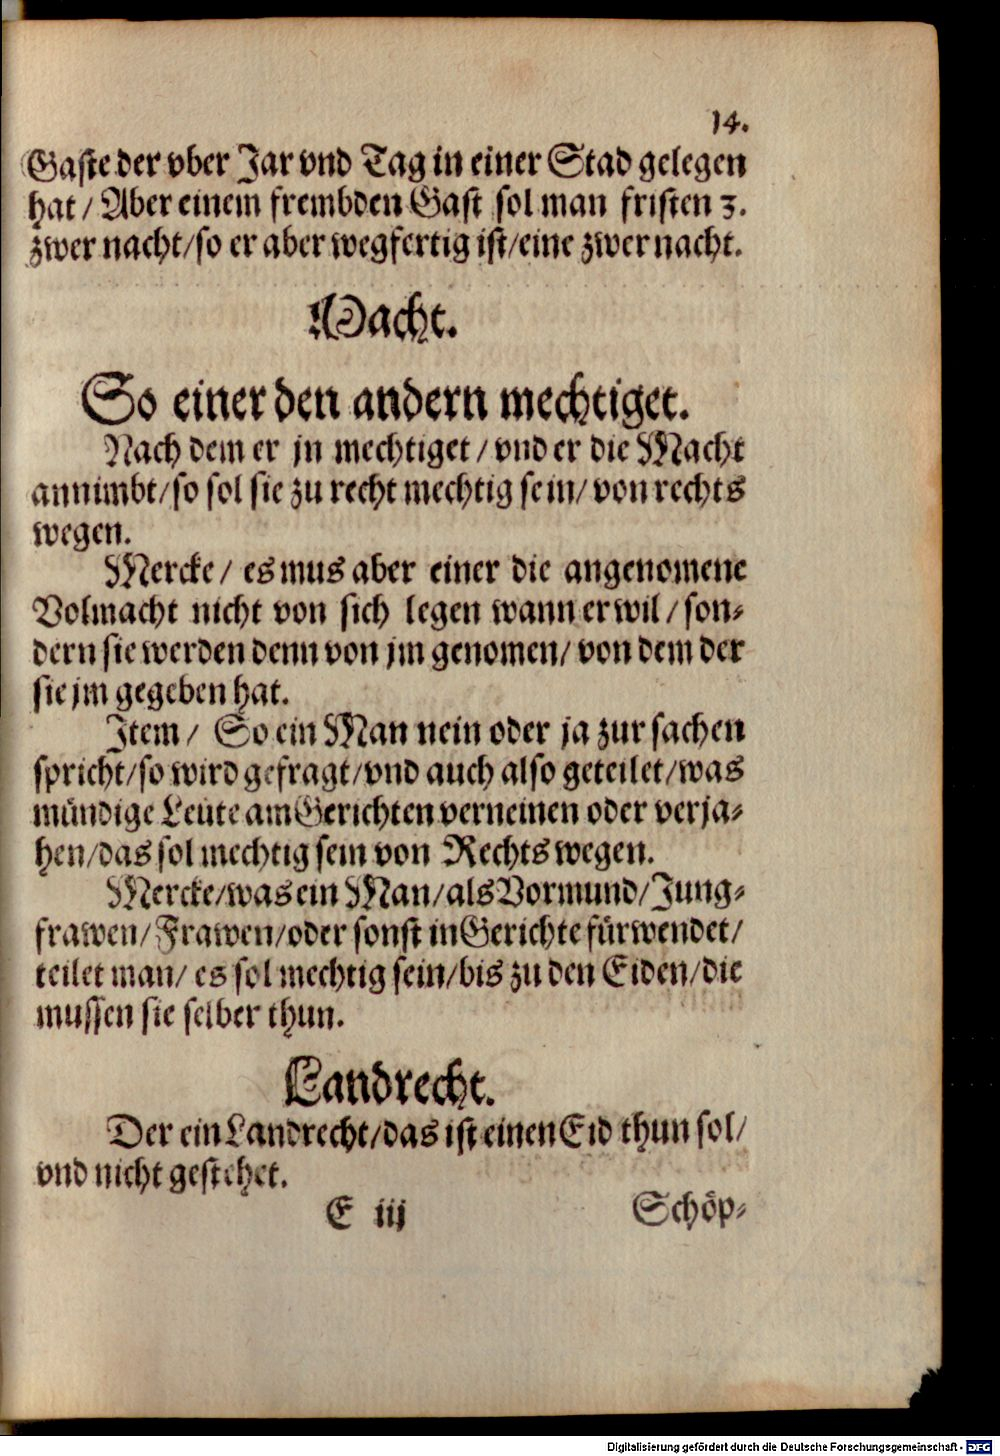 14.
Gaste der vber Jar vnd Tag in einer Stad gelegen
hat / Aber einem frembden Gast sol man fristen 3.
zwer nacht/so er aber wegfertig ist/eine zwer nacht.
Macht.
So einer den andern mechtiget.
Nach dem er jn mechtiget / vnd er die Macht
annimbt/so sol sie zu recht mechtig sein/ von rechts
wegen.
Mercke / es mus aber einer die angenomene
Volmacht nicht von sich legen wann er wil / son-
dern sie werden denn von jm genomen/ von dem der
sie jm gegeben hat.
Item / So ein Man nein oder ja zur sachen
spricht/so wird gefragt/vnd auch also geteilet/was
mündige Leute am Gerichten verneinen oder verja-
hen/das sol mechtig sein von Rechts wegen.
Mercke/was ein Man/als Vormund/Jung-
frawen/Frawen/oder sonst in Gerichte fürwendet/
teilet man/ es sol mechtig sein/bis zu den Eiden/die
mussen sie selber thun.
Landrecht.
Der ein Landrecht/das ist einen Eid thun sol/
vnd nicht gestehet.
E iii Schöp-
Digitalisierung gefördert durch die Deutsche Forschungsgemeinschaft - DFG